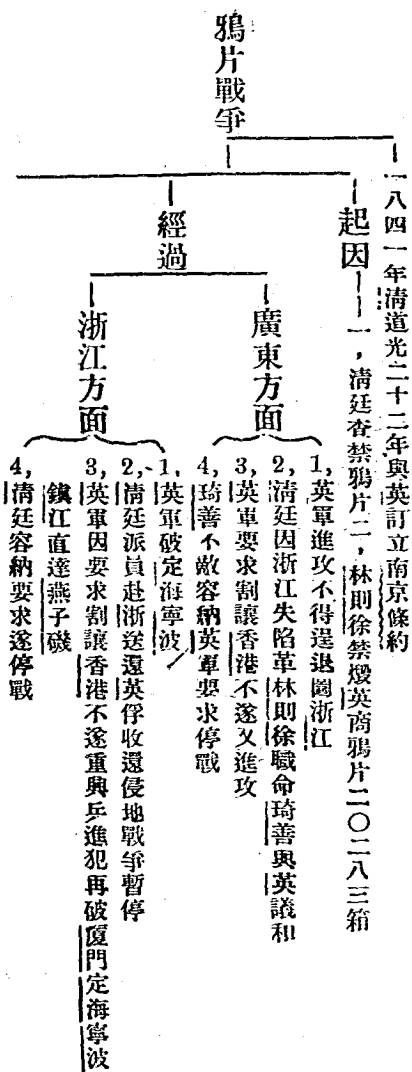 鴉片戰爭
一八四一年清道光二十二年與英訂立南京條約
起因——一，清廷查禁鴉片二，林則徐禁燬英商鴉片二〇二八三箱
經過
廣東方面
1，英軍進攻不得逞退圖浙江
2，清廷因浙江失陷革林則徐職命琦善與英議和
3，英軍要求割讓香港不遂又進攻
4，琦善不敵容納英軍要求停戰
浙江方面
1，英軍破定海寧波
2，清廷派員赴浙送還英俘收還侵地戰爭暫停
3，英軍因要求割讓香港不遂重興兵進犯再破廈門定海寧波
鎮江直達燕子磯
4，清廷容納要求遂停戰